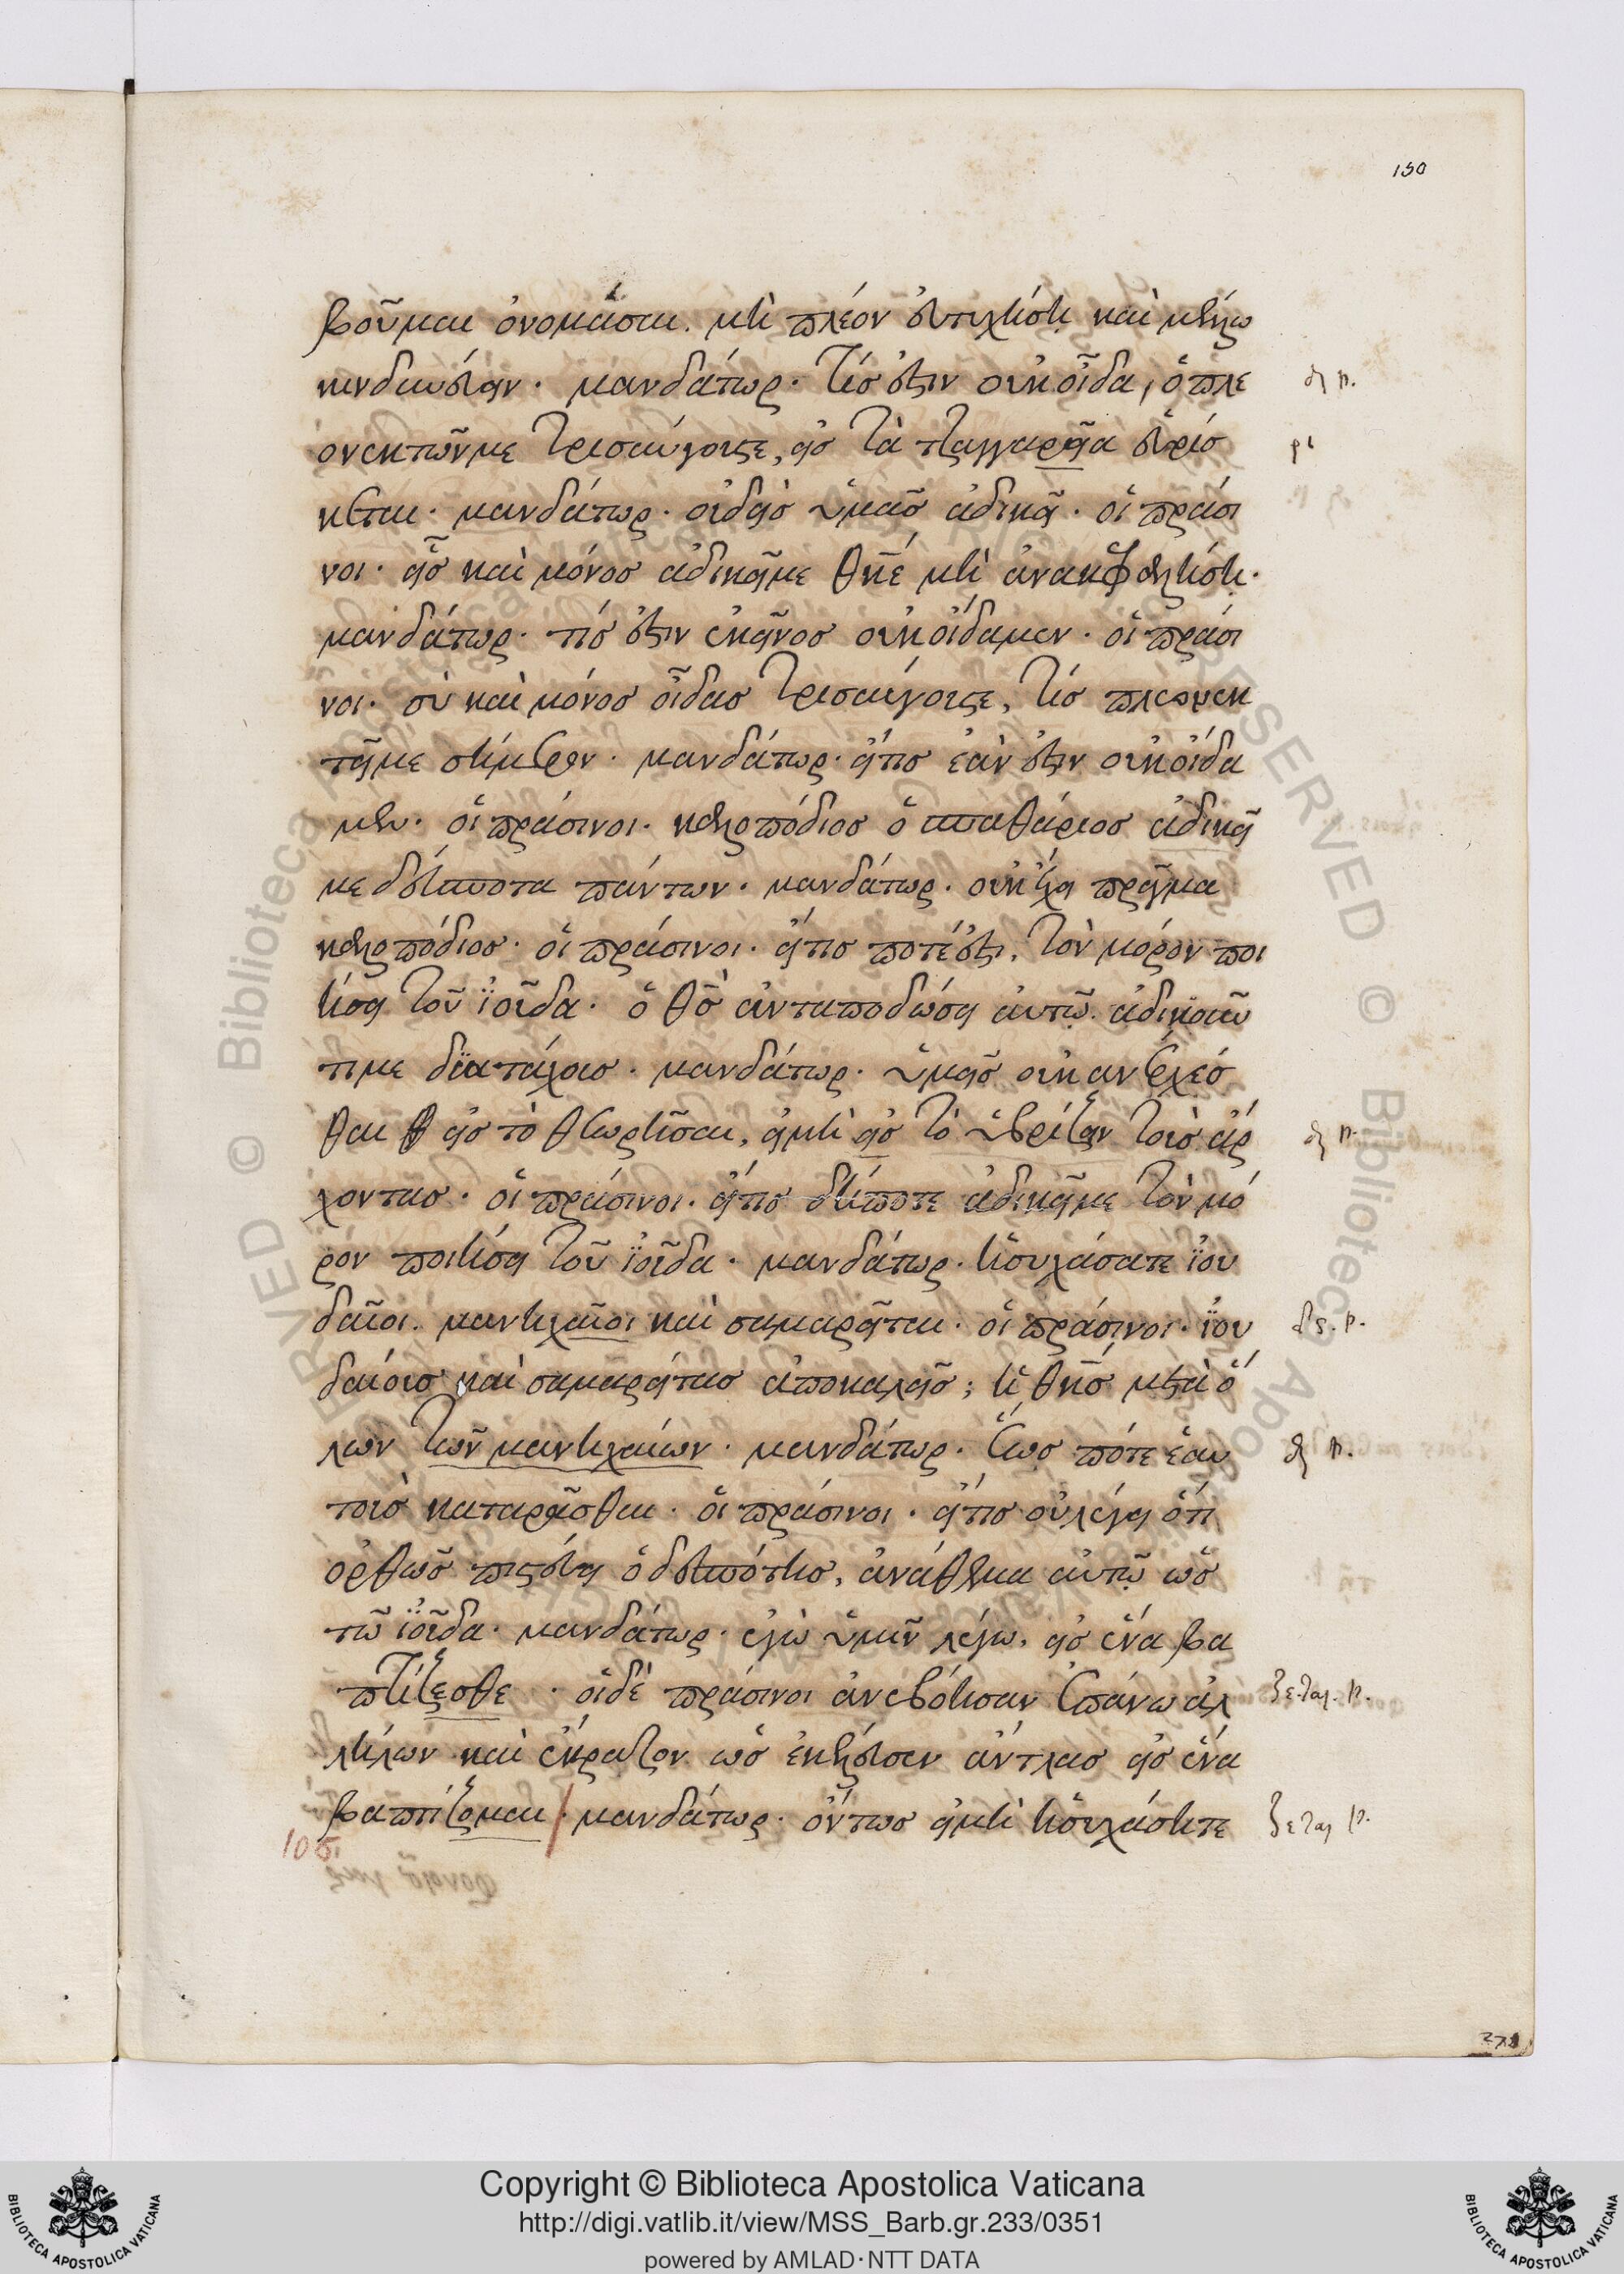 150
βοῦμαι ὀνομάσαι. μὴ πλέον εὐτυχήσῃ καὶ μέλλω
κινδυνεύειν· μανδάτωρ· τίς ἐστιν οὐκ οἶδα, ὁ πλε
ονεκτῶν με τρισαύγουστε, εἰς τὰ τζαγγαρεῖα εὑρίσ
κεται· μανδάτωρ· οὐδεὶς ὑμᾶς ἀδικεῖ· οἱ πράσι
νοι· εἷς καὶ μόνος ἀδικεῖ με θκε μὴ ἀνακεφαλήσῃ·
μανδάτωρ· τίς ἐστιν ἐκεῖνος οὐκ οἴδαμεν· οἱ πράσι
νοι· σὺ καὶ μόνος οἶδας τρισαύγουστε, τίς πλεονεκ
τεῖ με σήμερον· μανδάτωρ· εἴτις ἐὰν ἐστιν οὐκ οἴδα
μεν· οἱ πράσινοι· καλοπόδιος ὁ σπαθάριος ἀδικεῖ
με δέσποτα πάντων· μανδάτωρ· οὐκ ἔχει πρᾶγμα
καλοπόδιος· οἱ πράσινοι· εἴτις ποτέ ἐστι, τὸν μόρον ποι
ήσει τοῦ ϊούδα· ὁ θς ἀνταποδώσει αὐτῷ ἀδικοῦν
τι με διατάχους· μανδάτωρ· ὑμεῖς οὐκ ανέρχεσ
θαι εἰς τὸ θεωρῆσαι, εἰμὴ εἰς τὸ ὑβρίζειν τοὺς ἄρ
χοντας· οἱ πράσινοι· εἴτις δήποτε ἀδικεῖ με τὸν μό
ρον ποιήσει τοῦ ϊούδα· μανδάτωρ· ἡσυχάσατε ϊου
δαῖοι. μανηχαῖοι καὶ σαμαρεῖται· οἱ πράσινοι· ϊου
δαίους καὶ σαμαρείτας ἀποκαλεῖς; ἡ θκς μετὰ ὅ
λων τῶν μανηχαίων· μανδάτωρ· ἕως πότε ἑαυ
τοὺς καταρᾶσθαι· οἱ πράσινοι· εἴτις οὐ λέγει ὅτι
ὀρθῶς πιστεύει ὁ δεσπότης, ἀνάθεμα αὐτῷ ὡς
τῶ ϊούδα· μανδάτωρ· ἐγὼ ὑμῖν λέγω, εἰς ἕνα βα
πτίζεσθε· οἱ δὲ πράσινοι ἀνεβόησαν ἐπάνω ἀλ
λήλων καὶ ἔκραζον ὡς ἐκέλευσεν ἄντλας εἰς ἕνα
βαπτίζομαι· μανδάτωρ· ὄντως εἰμὴ ἡσυχάσητε
Copyright © Biblioteca Apostolica Vaticana
http://digi.vatlib.it/view/MSS_Barb.gr.233/0351
powered by AMLAD·NTT DATA
BIBLIOTECA APOSTOLICA VATICANA
BIBLIOTECA APOSTOLICA VATICANA